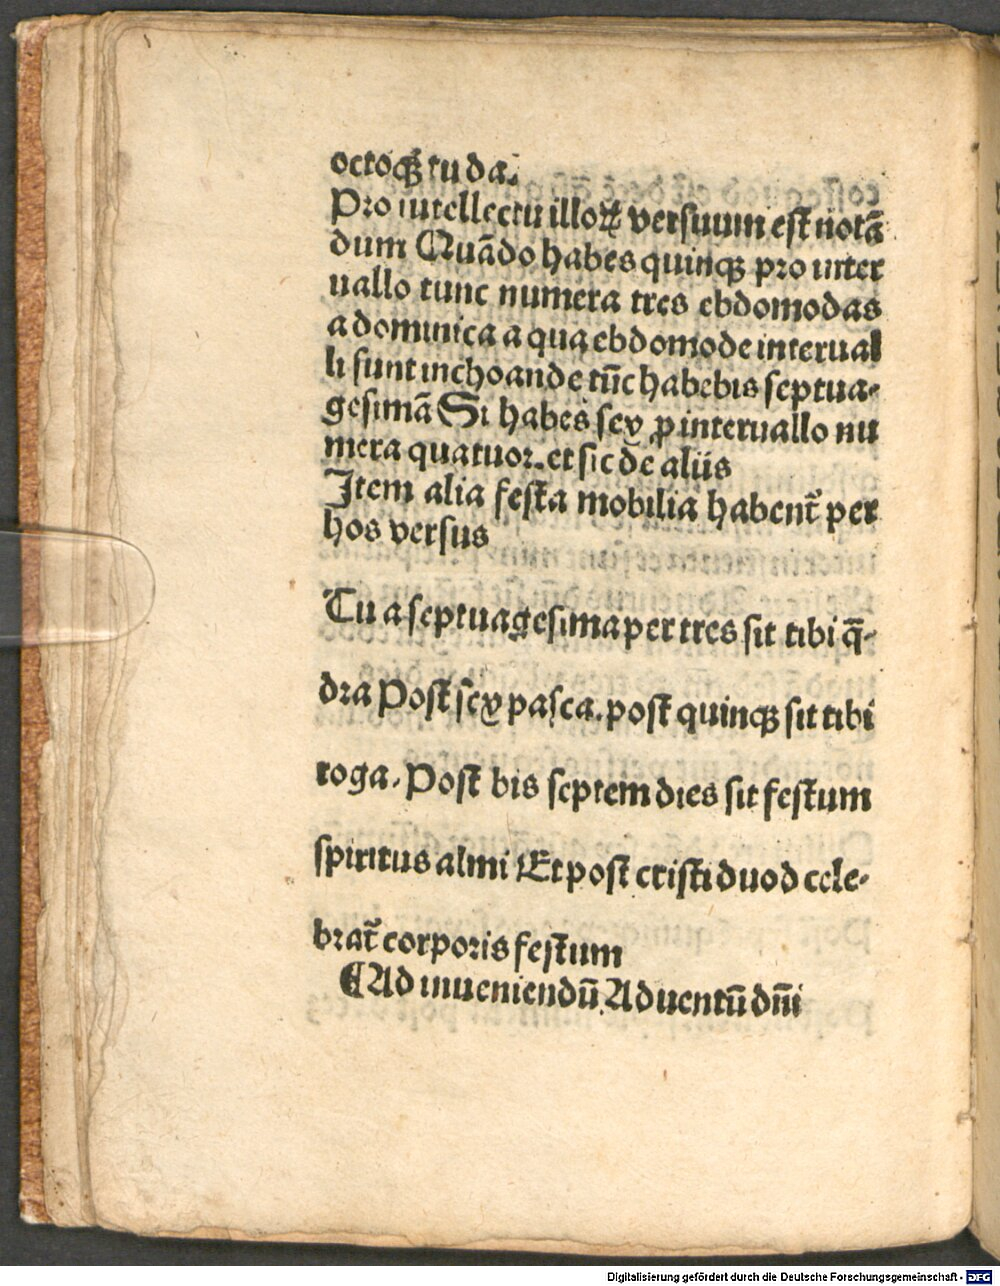 octoqꝫ tu da.
Pro intellectu illoꝝ versuum est notā
dum Quādo habes quinqꝫ pro inter
uallo tunc numera tres ebdomodas
a dominica a qua ebdomode interual
li sunt inchoande tūc habebis septua-
gesimā Si habes sex ꝓ interuallo nu
mera quatuor. et sic de aliis
Item alia festa mobilia habent᷑ per
hos versus
Tu a septuagesima per tres sit tibi q̄-
dra Post sex pasca. post quinqꝫ sit tibi
roga. Post bis septem dies sit festum
spiritus almi Et post cristi duod cele-
brat᷑ corporis festum
¶Ad inueniendū Aduentū dn̄i
Digitalisierung gefördert durch die Deutsche Forschungsgemeinschaft - DFG